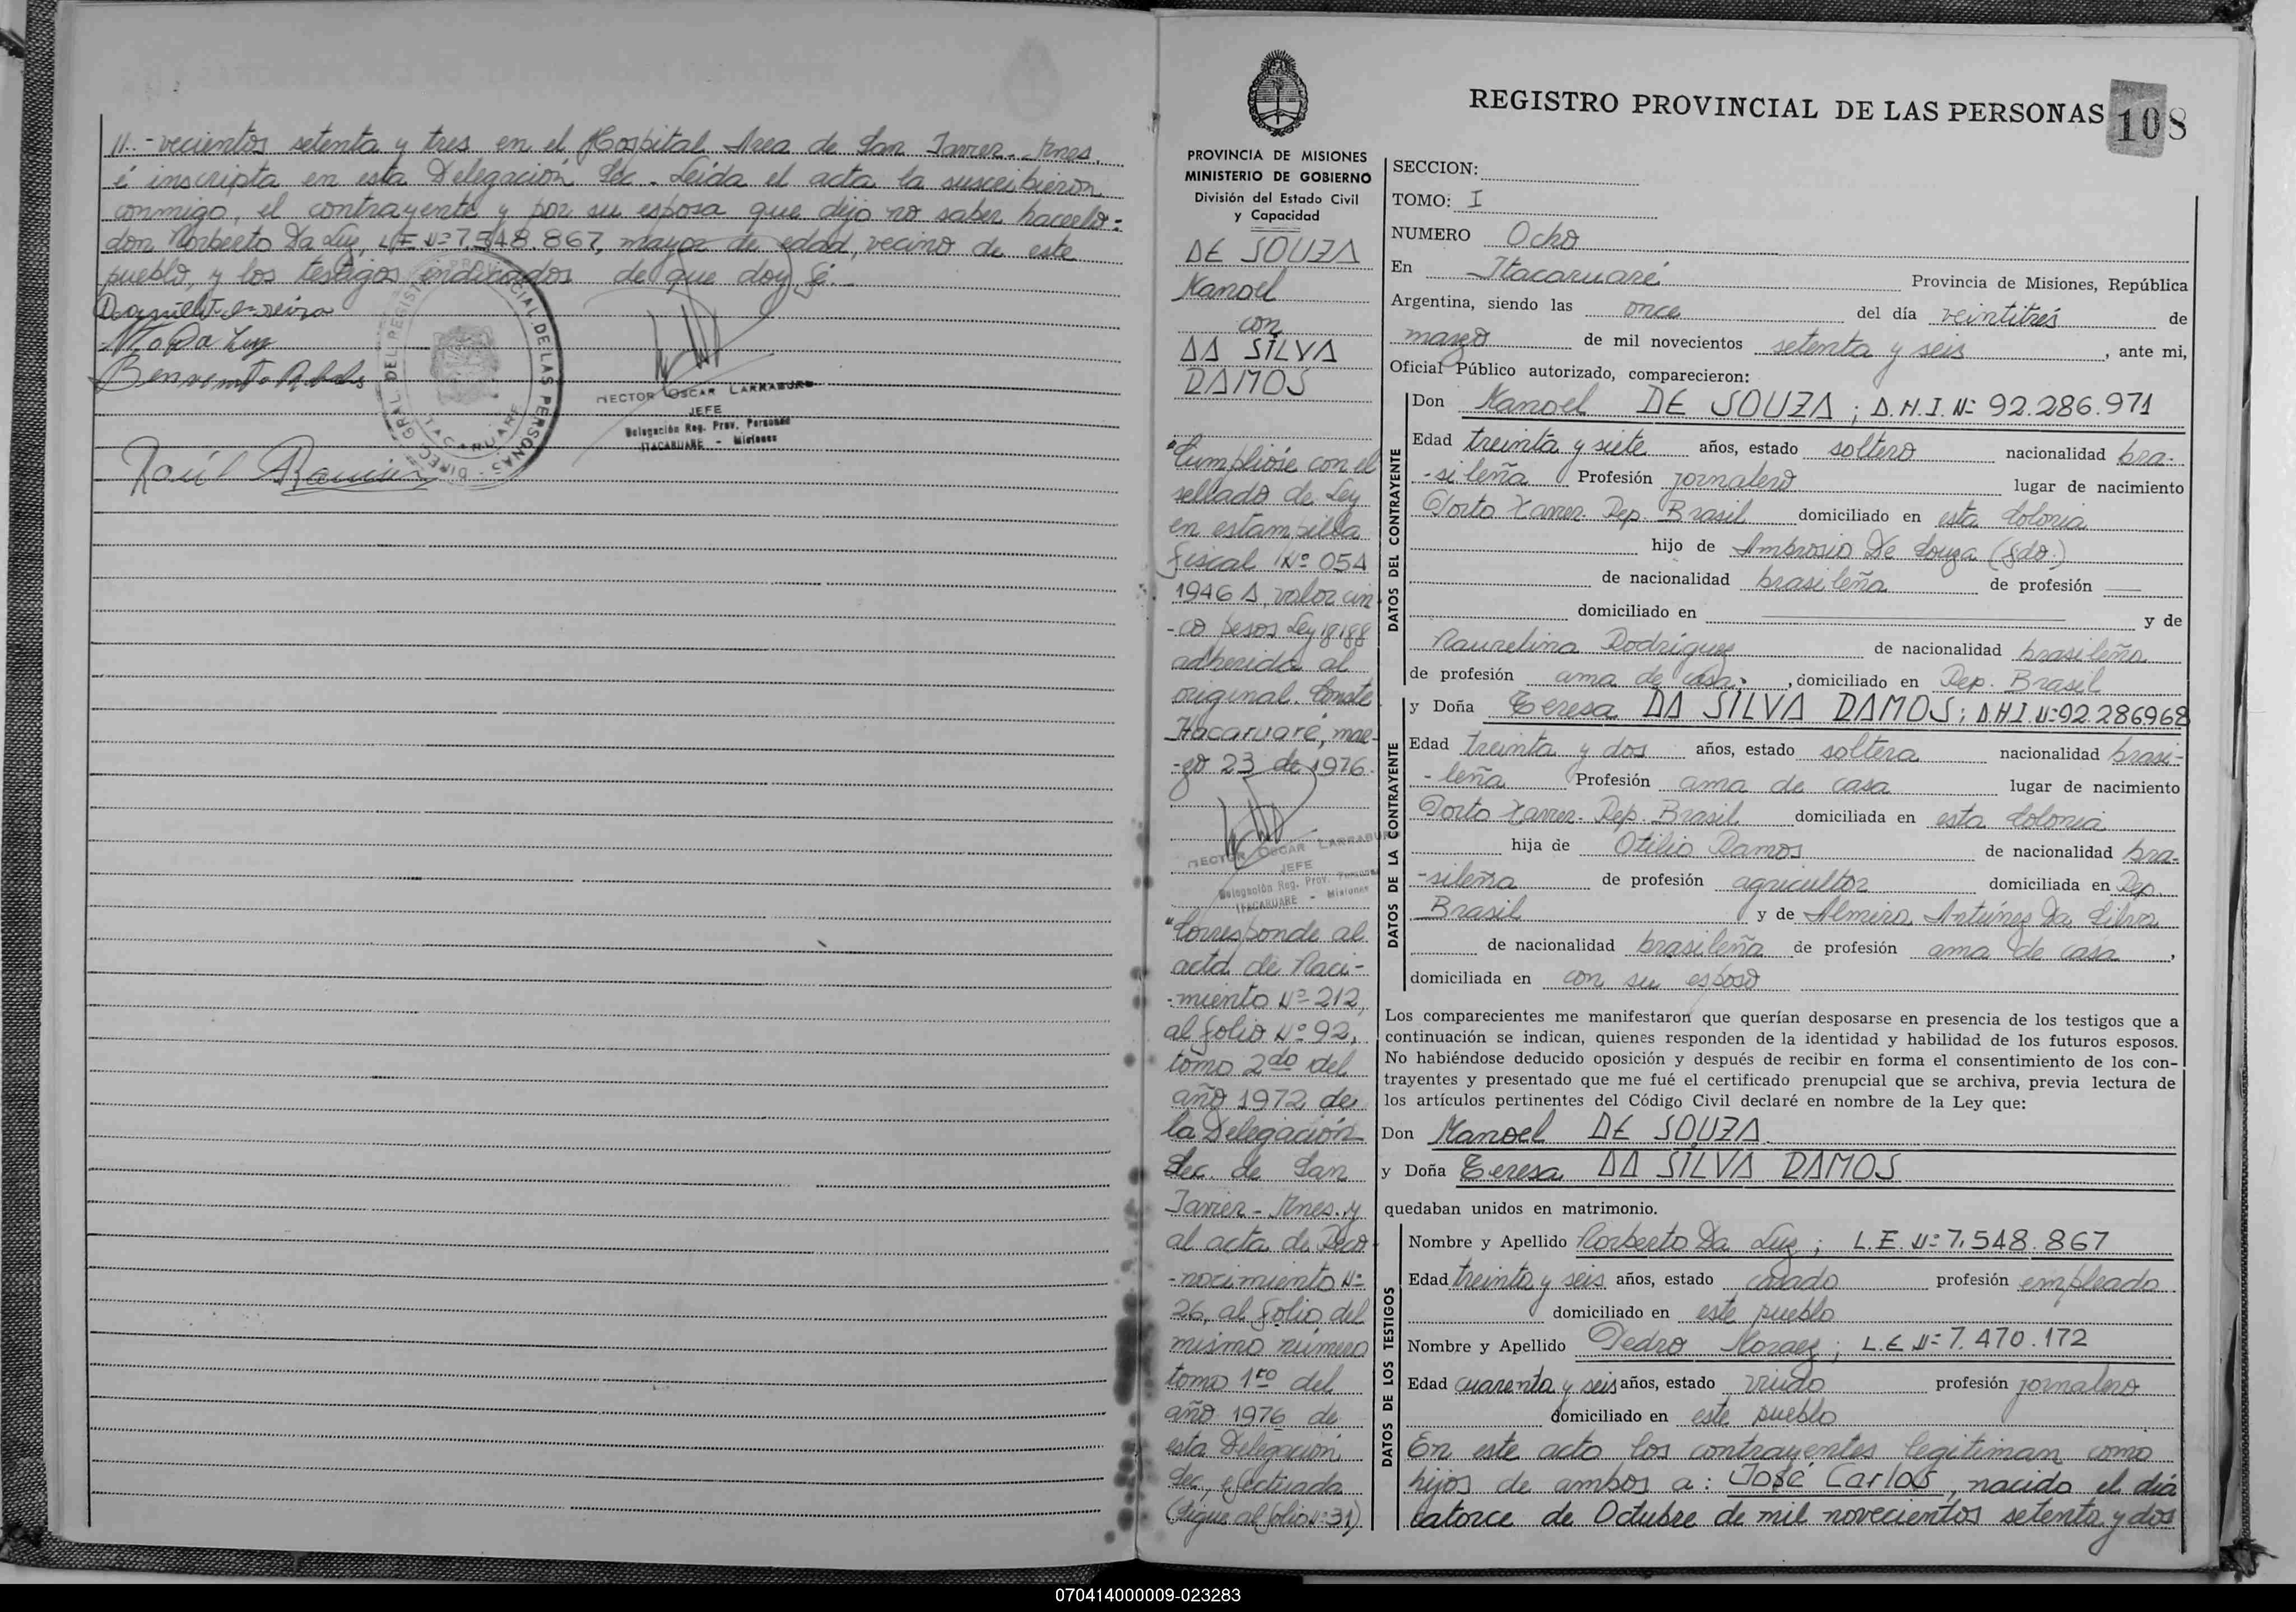 11.- vecientos setenta y tres en el Hospital Area de San Javier.-Mnes.
é inscripta en esta Delegación Sec. Leida el acta la suscribieron
conmigo, el contrayente y por su esposa que dijo no saber hacerlo:
don Norberto Da Luz, L.E. Nº 7.548.867, mayor de edad, vecino de este
pueblo, y los testigos indicados de que doy fé.-
DIREC. GRAL. DEL REGISTRO PROVINCIAL DE LAS PERSONAS
ITACARUARE
HECTOR OSCAR LARRABURU
JEFE
Delegación Reg. Prov. Personas
ITACARUARE - Misiones
Raúl Ramirez
PROVINCIA DE MISIONES
MINISTERIO DE GOBIERNO
División del Estado Civil
y Capacidad
DE SOUZA
Manoel
con
DA SILVA
RAMOS
"Cumplióse con el
sellado de Ley
en estampilla
fiscal Nº 054
1946 A, valor cin
-co pesos Ley 18188
adherida al
original. Conste
Itacaruaré, mar-
-zo 23 de 1976.
HECTOR OSCAR LARRABURU
JEFE
Delegación Reg. Prov. Personas
ITACARUARE - Misiones
"Corresponde al
acta de Naci-
-miento Nº 212,
al folio Nº 92,
tomo 2do del
año 1972 de
la Delegación
Sec. de San
Javier - Mnes. y
al acta de Reco-
-nocimiento Nº
26, al folio del
mismo número
tomo 1ro del
año 1976 de
esta Delegación
Sec., efectuada
(Sigue al folio Nº 31)
REGISTRO PROVINCIAL DE LAS PERSONAS 108
SECCION:
TOMO: I
NUMERO Ocho
En Itacaruaré Provincia de Misiones, República
Argentina, siendo las once del día veintitrés de
marzo de mil novecientos setenta y seis, ante mi,
Oficial Público autorizado, comparecieron:
DATOS DEL CONTRAYENTE
Don Manoel DE SOUZA; D.N.I. Nº 92.286.971
Edad treinta y siete años, estado soltero nacionalidad bra-
-sileña Profesión jornalero lugar de nacimiento
Porto Xavier. Rep. Brasil domiciliado en esta Colonia
hijo de Ambrosio De Souza (fdo.)
de nacionalidad brasileña de profesión —
domiciliado en — y de
Maurelina Rodriguez de nacionalidad brasileña
de profesión ama de casa, domiciliado en Rep. Brasil
DATOS DE LA CONTRAYENTE
y Doña Teresa DA SILVA RAMOS; D.N.I. Nº 92.286968
Edad treinta y dos años, estado soltera nacionalidad brasi-
-leña Profesión ama de casa lugar de nacimiento
Porto Xavier. Rep. Brasil domiciliada en esta Colonia
hija de Otilio Ramos de nacionalidad bra-
-sileña de profesión agricultor domiciliada en Rep.
Brasil y de Almira Antúnez Da Silva
de nacionalidad brasileña de profesión ama de casa,
domiciliada en con su esposo
Los comparecientes me manifestaron que querían desposarse en presencia de los testigos que a
continuación se indican, quienes responden de la identidad y habilidad de los futuros esposos.
No habiéndose deducido oposición y después de recibir en forma el consentimiento de los con-
trayentes y presentado que me fué el certificado prenupcial que se archiva, previa lectura de
los artículos pertinentes del Código Civil declaré en nombre de la Ley que:
Don Manoel DE SOUZA
y Doña Teresa DA SILVA RAMOS
quedaban unidos en matrimonio.
DATOS DE LOS TESTIGOS
Nombre y Apellido Norberto Da Luz; L.E. Nº 7.548.867
Edad treinta y seis años, estado casado profesión empleado
domiciliado en este pueblo
Nombre y Apellido Pedro Moraez; L.E Nº 7.470.172
Edad cuarenta y seis años, estado viudo profesión jornalero
domiciliado en este pueblo
En este acto los contrayentes legitiman como
hijos de ambos a: José Carlos, nacido el día
catorce de Octubre de mil novecientos setenta y dos
070414000009-023283